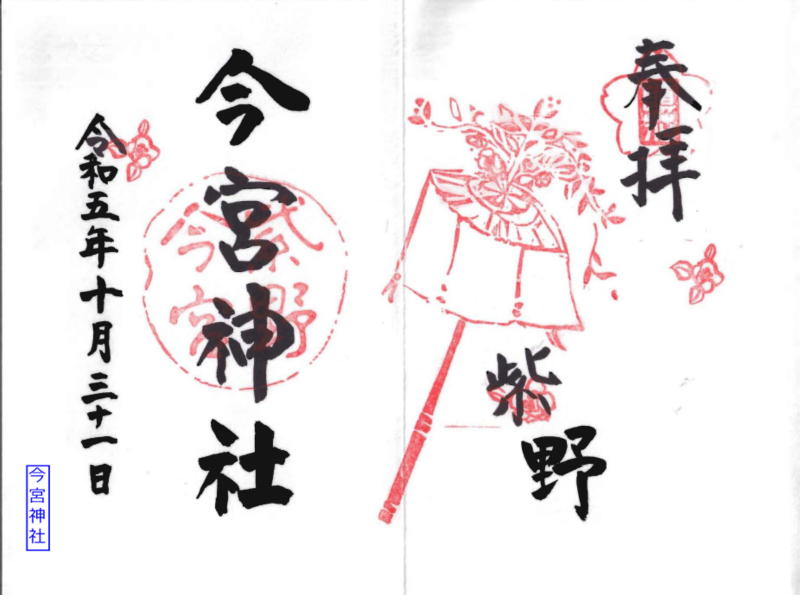 奉拝
紫野
今宮神社
紫野
今宮
令和五年十月三十一日
今宮神社